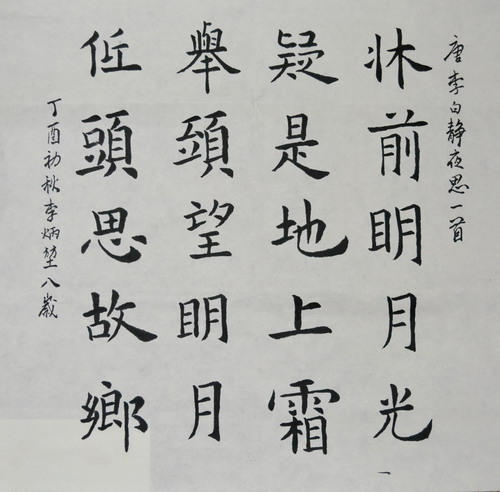 唐李白静夜思一首
牀前眀月光
疑是地上霜
舉頭望眀月
低頭思故鄉
丁酉初秋李炳堃八歲